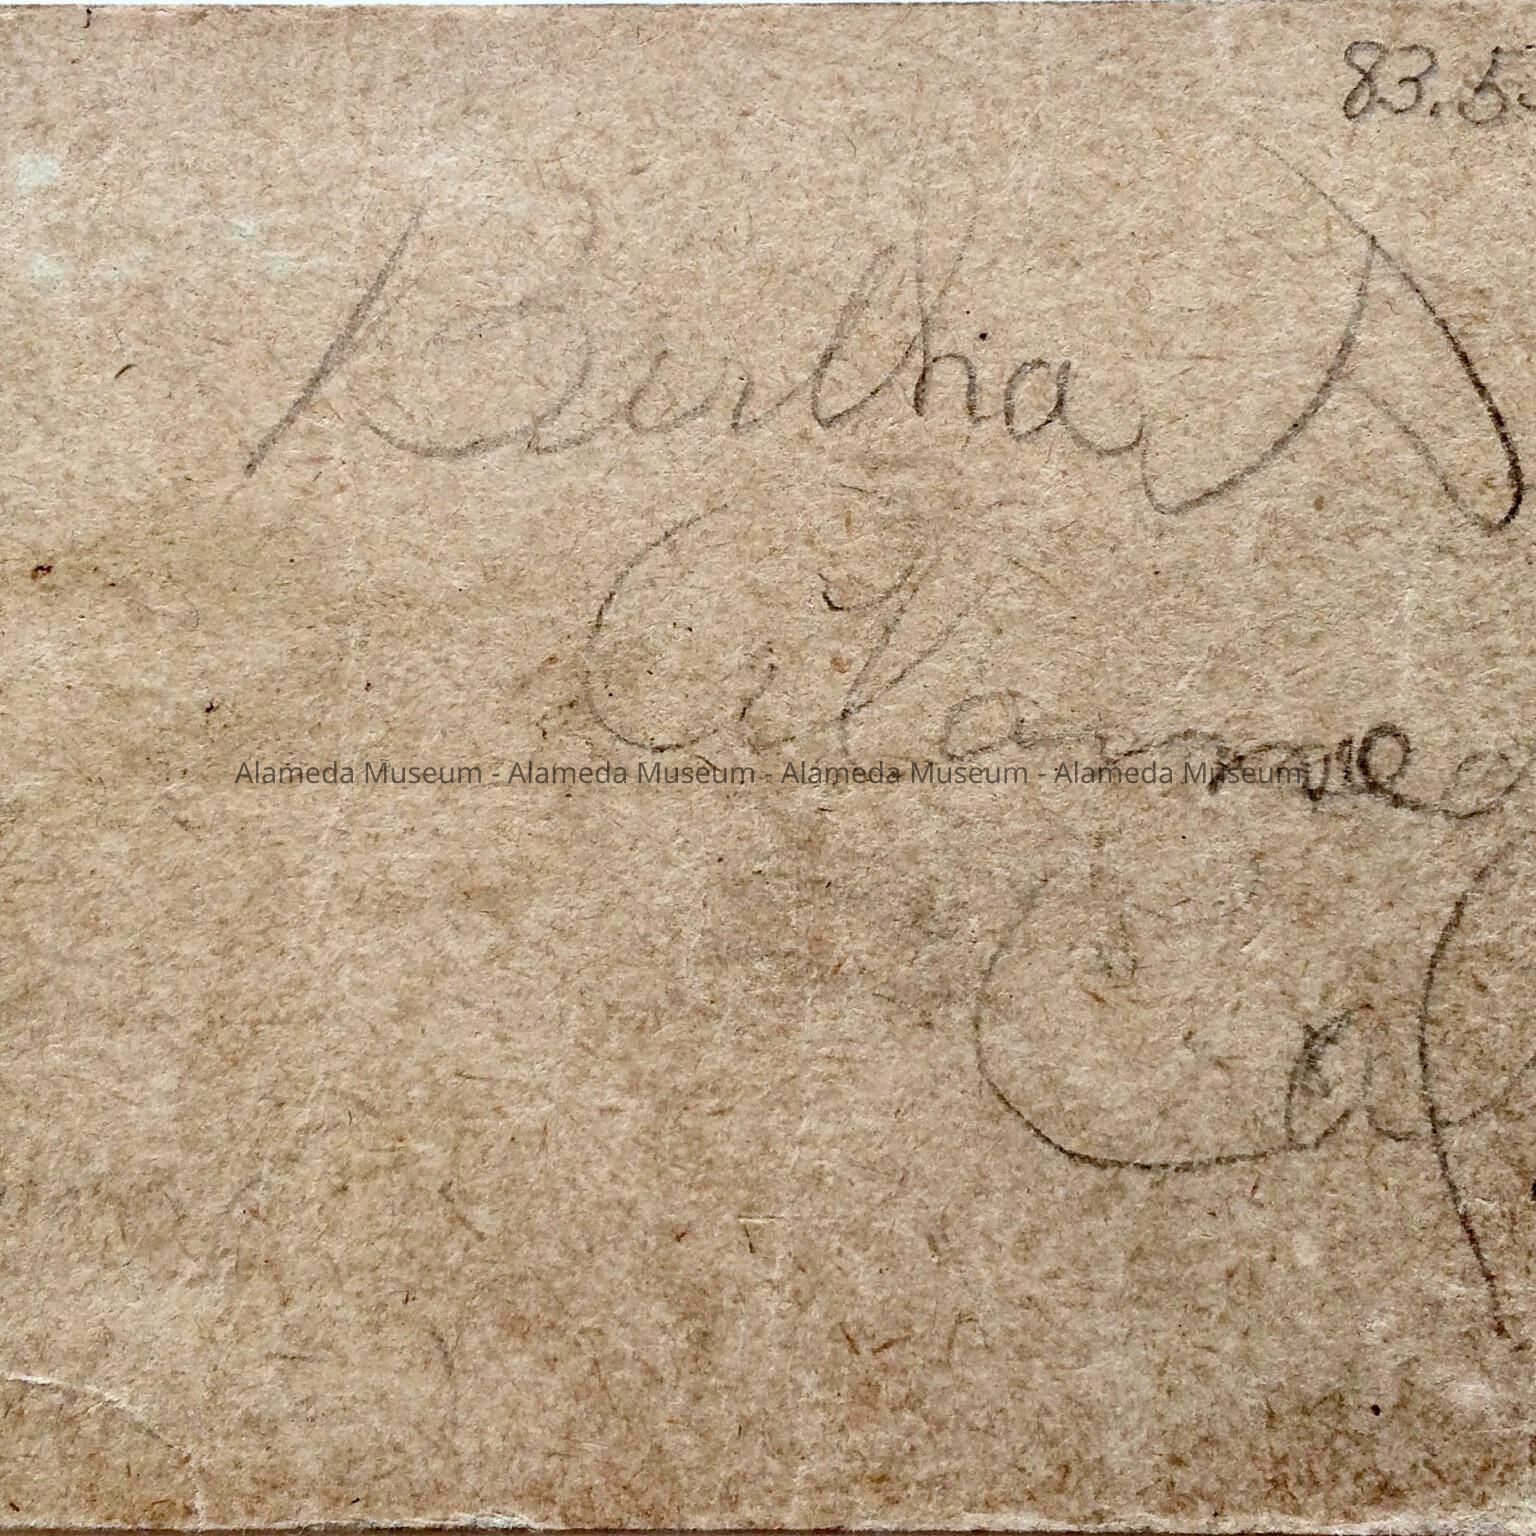 83.5
Bertha
Alamed
Alameda Museum - Alameda Museum - Alameda Museum - Alameda Museum
Cal